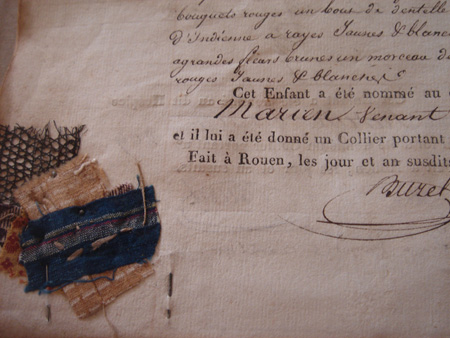 bouquets rouges un bous de dentelle
d'Indienne a rayes Jaunes & blanc
agrandes fleurs brunes un morceau de
rouges Jaunes & blanches &c
Cet Enfant a été nommé au
Marien Venant
et il lui a été donné un Collier portant
Fait à Rouen, les jour et an susdits
Buret